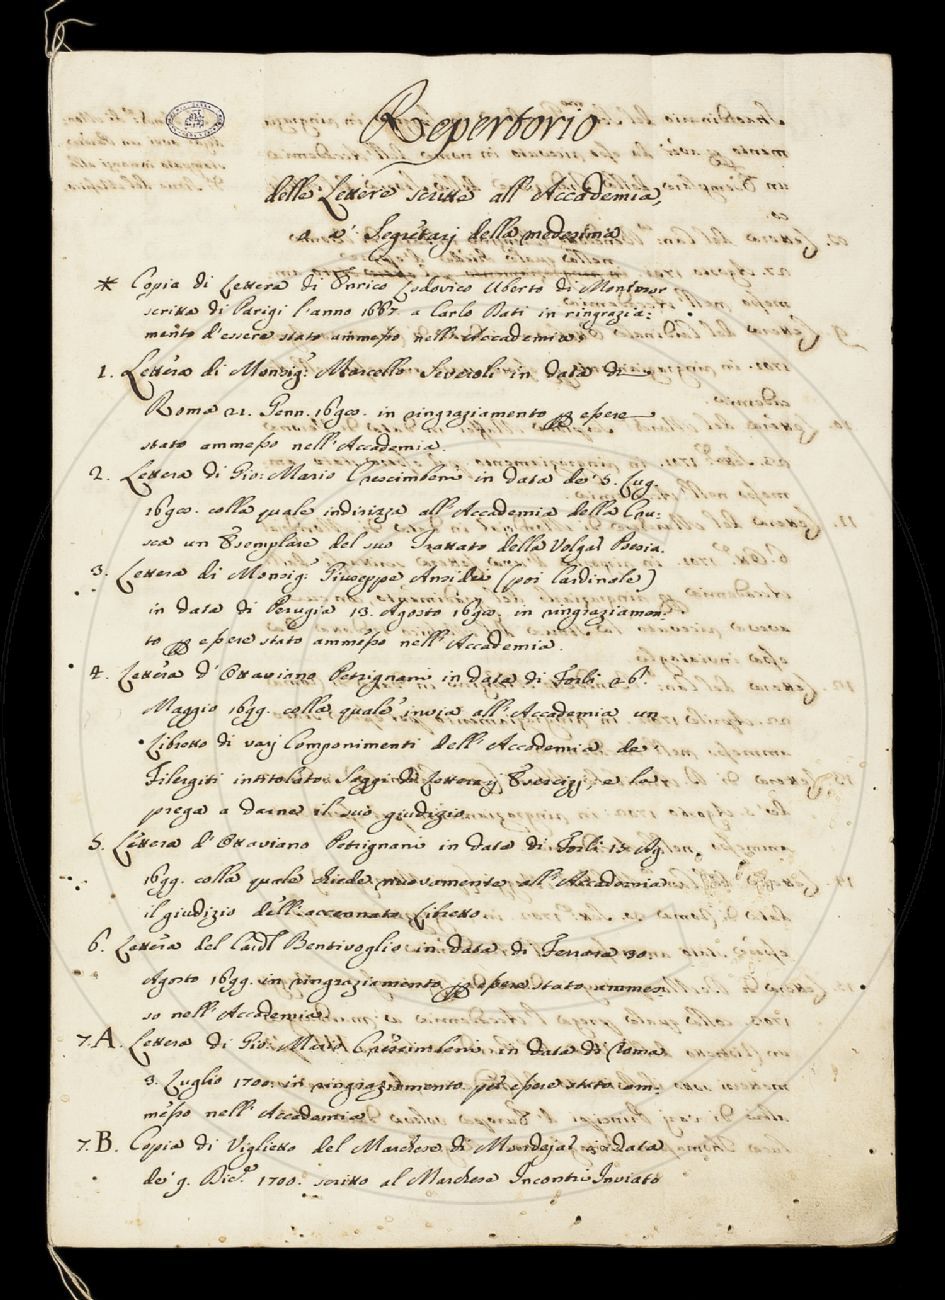 Repertorio
delle Lettere scritte all'Accademia,
a a' Segretarj della medesima
* Copia di Lettera di Enrico Lodovico Uberto di Montmor
scritta di Parigi l'anno 1667. a Carlo Dati in ringrazia:
mento d'essere stato ammesso nell'Accademia.
1. Lettera di Monsig: Marcello Severoli in data di
Roma 21. Genn. 1690. in ringraziamento p essere
stato ammesso nell'Accademia.
2. Lettera di Gio: Mario Crescimbeni in data de' 5. Lug.
1690. colla quale indirizza all'Accademia della Cru:
sca un Esemplare del suo Trattato della Volgar Poesia.
3. Lettera di Monsig: Giuseppe Ansidei (poi Cardinale)
in data di Perugia 13. Agosto 1690. in ringraziamen:
to p essere stato ammesso nell'Accademia.
4. Lettera d'Ottaviano Petrignani in data di Forlì 26.
Maggio 1699. colla quale invia all'Accademia un
Libretto di varj Componimenti dell'Accademia de'
Filergiti intitolato: Saggi de Letterarj Esercizj, e la
prega a darne il suo giudizio
5. Lettera d'Ottaviano Petrignani in data di Forlì 15 Ag.
1699. colla quale chiede nuovamente all'Accademia
il giudizio dell'accennato Libretto
6. Lettera del Cardl Bentivoglio in data di Ferrara 30.
Agosto 1699. in ringraziamento p essere stato ammes:
so nell'Accademia
7.A. Lettera di Gio: Mario Crescimbeni in data di Roma
3. Luglio 1700. in ringraziamento per essere stato am:
messo nell'Accademia
7.B. Copia di Viglietto del Marchese di Mondejar in data
de' 9. Dic. 1700. scritto al Marchese Incontri Inviato